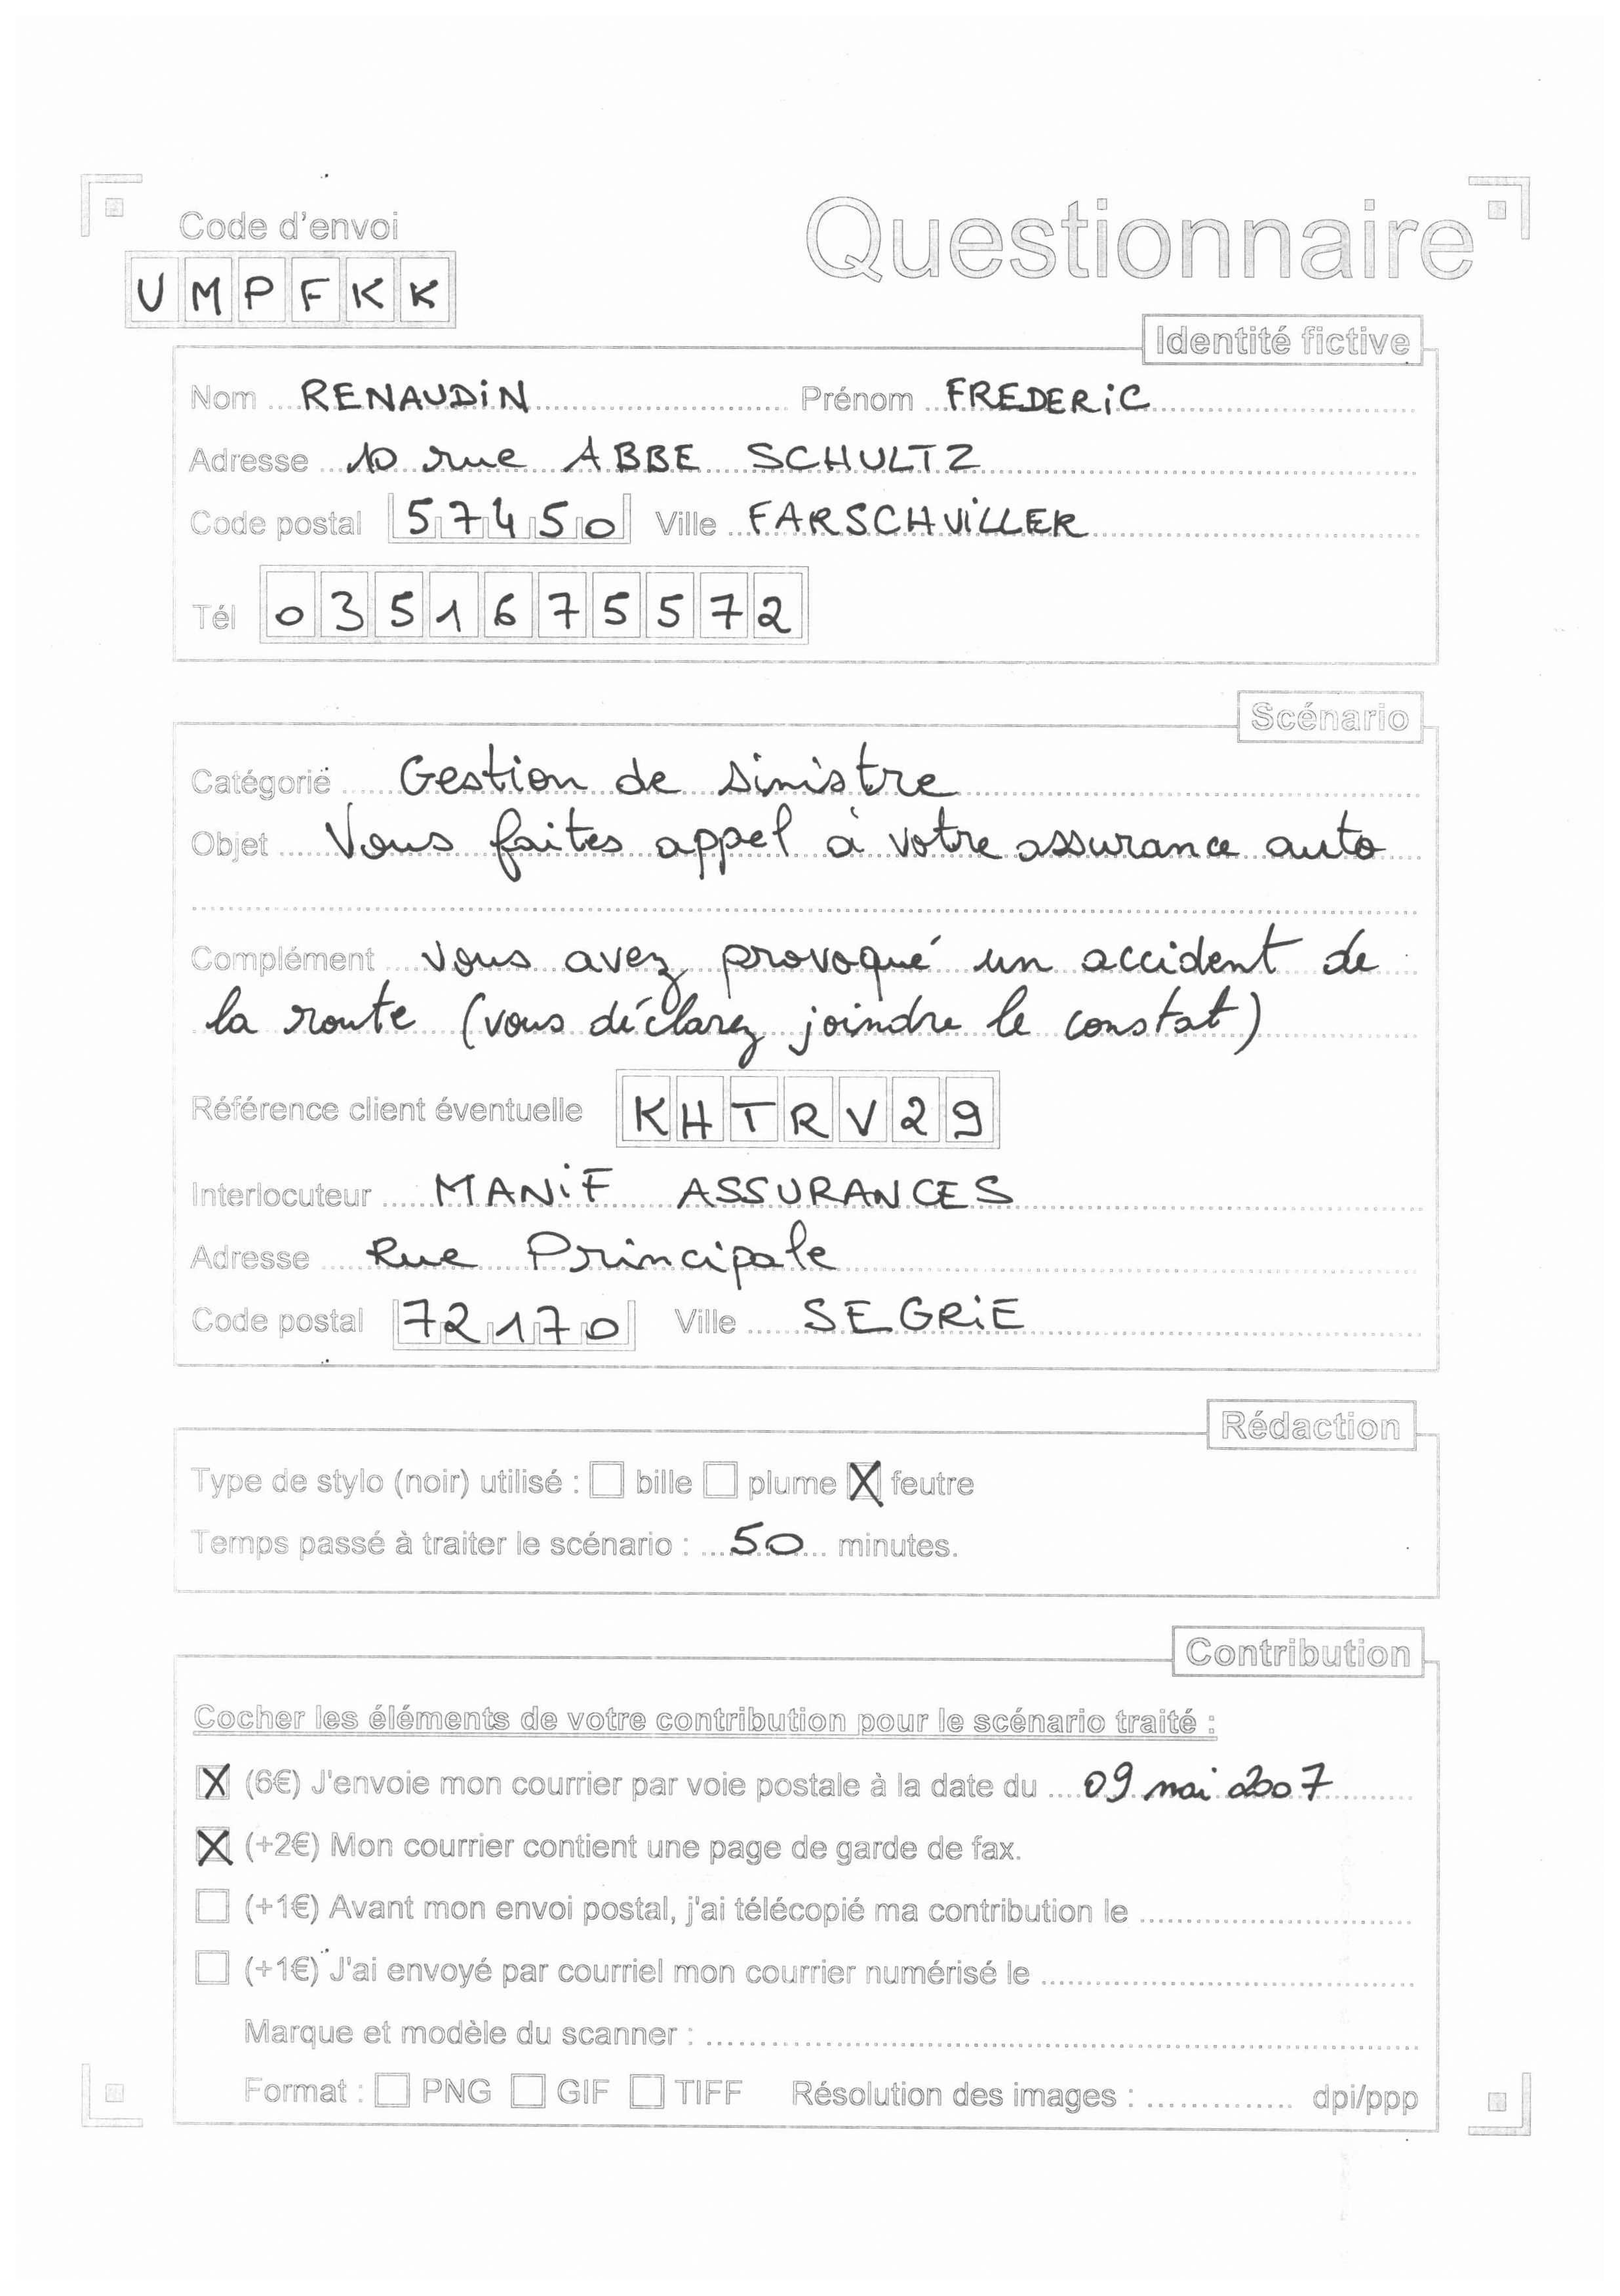 Code d'envoi
Questionnaire
UMPFKK
Identité fictive
Nom RENAUDIN Prénom FREDERIC
Adresse 10 rue ABBE SCHULTZ
Code postal 57450 Ville FARSCHVILLER
Tél 0351675572
Scénario
Catégorie Gestion de sinistre
Objet Vous faites appel à votre assurance auto
Complément Vous avez provoqué un accident de
la route (vous déclarez joindre le constat)
Référence client éventuelle KHTRV29
Interlocuteur MANIF ASSURANCES
Adresse Rue Principale
Code postal 72170 Ville SEGRIE
Rédaction
Type de stylo (noir) utilisé : bille plume X feutre
Temps passé à traiter le scénario : 50 minutes.
Contribution
Cocher les éléments de votre contribution pour le scénario traité :
X (6€) J'envoie mon courrier par voie postale à la date du 09 mai 2007
X (+2€) Mon courrier contient une page de garde de fax.
(+1€) Avant mon envoi postal, j'ai télécopié ma contribution le
(+1€) J'ai envoyé par courriel mon courrier numérisé le
Marque et modèle du scanner :
Format : PNG GIF TIFF Résolution des images : dpi/ppp